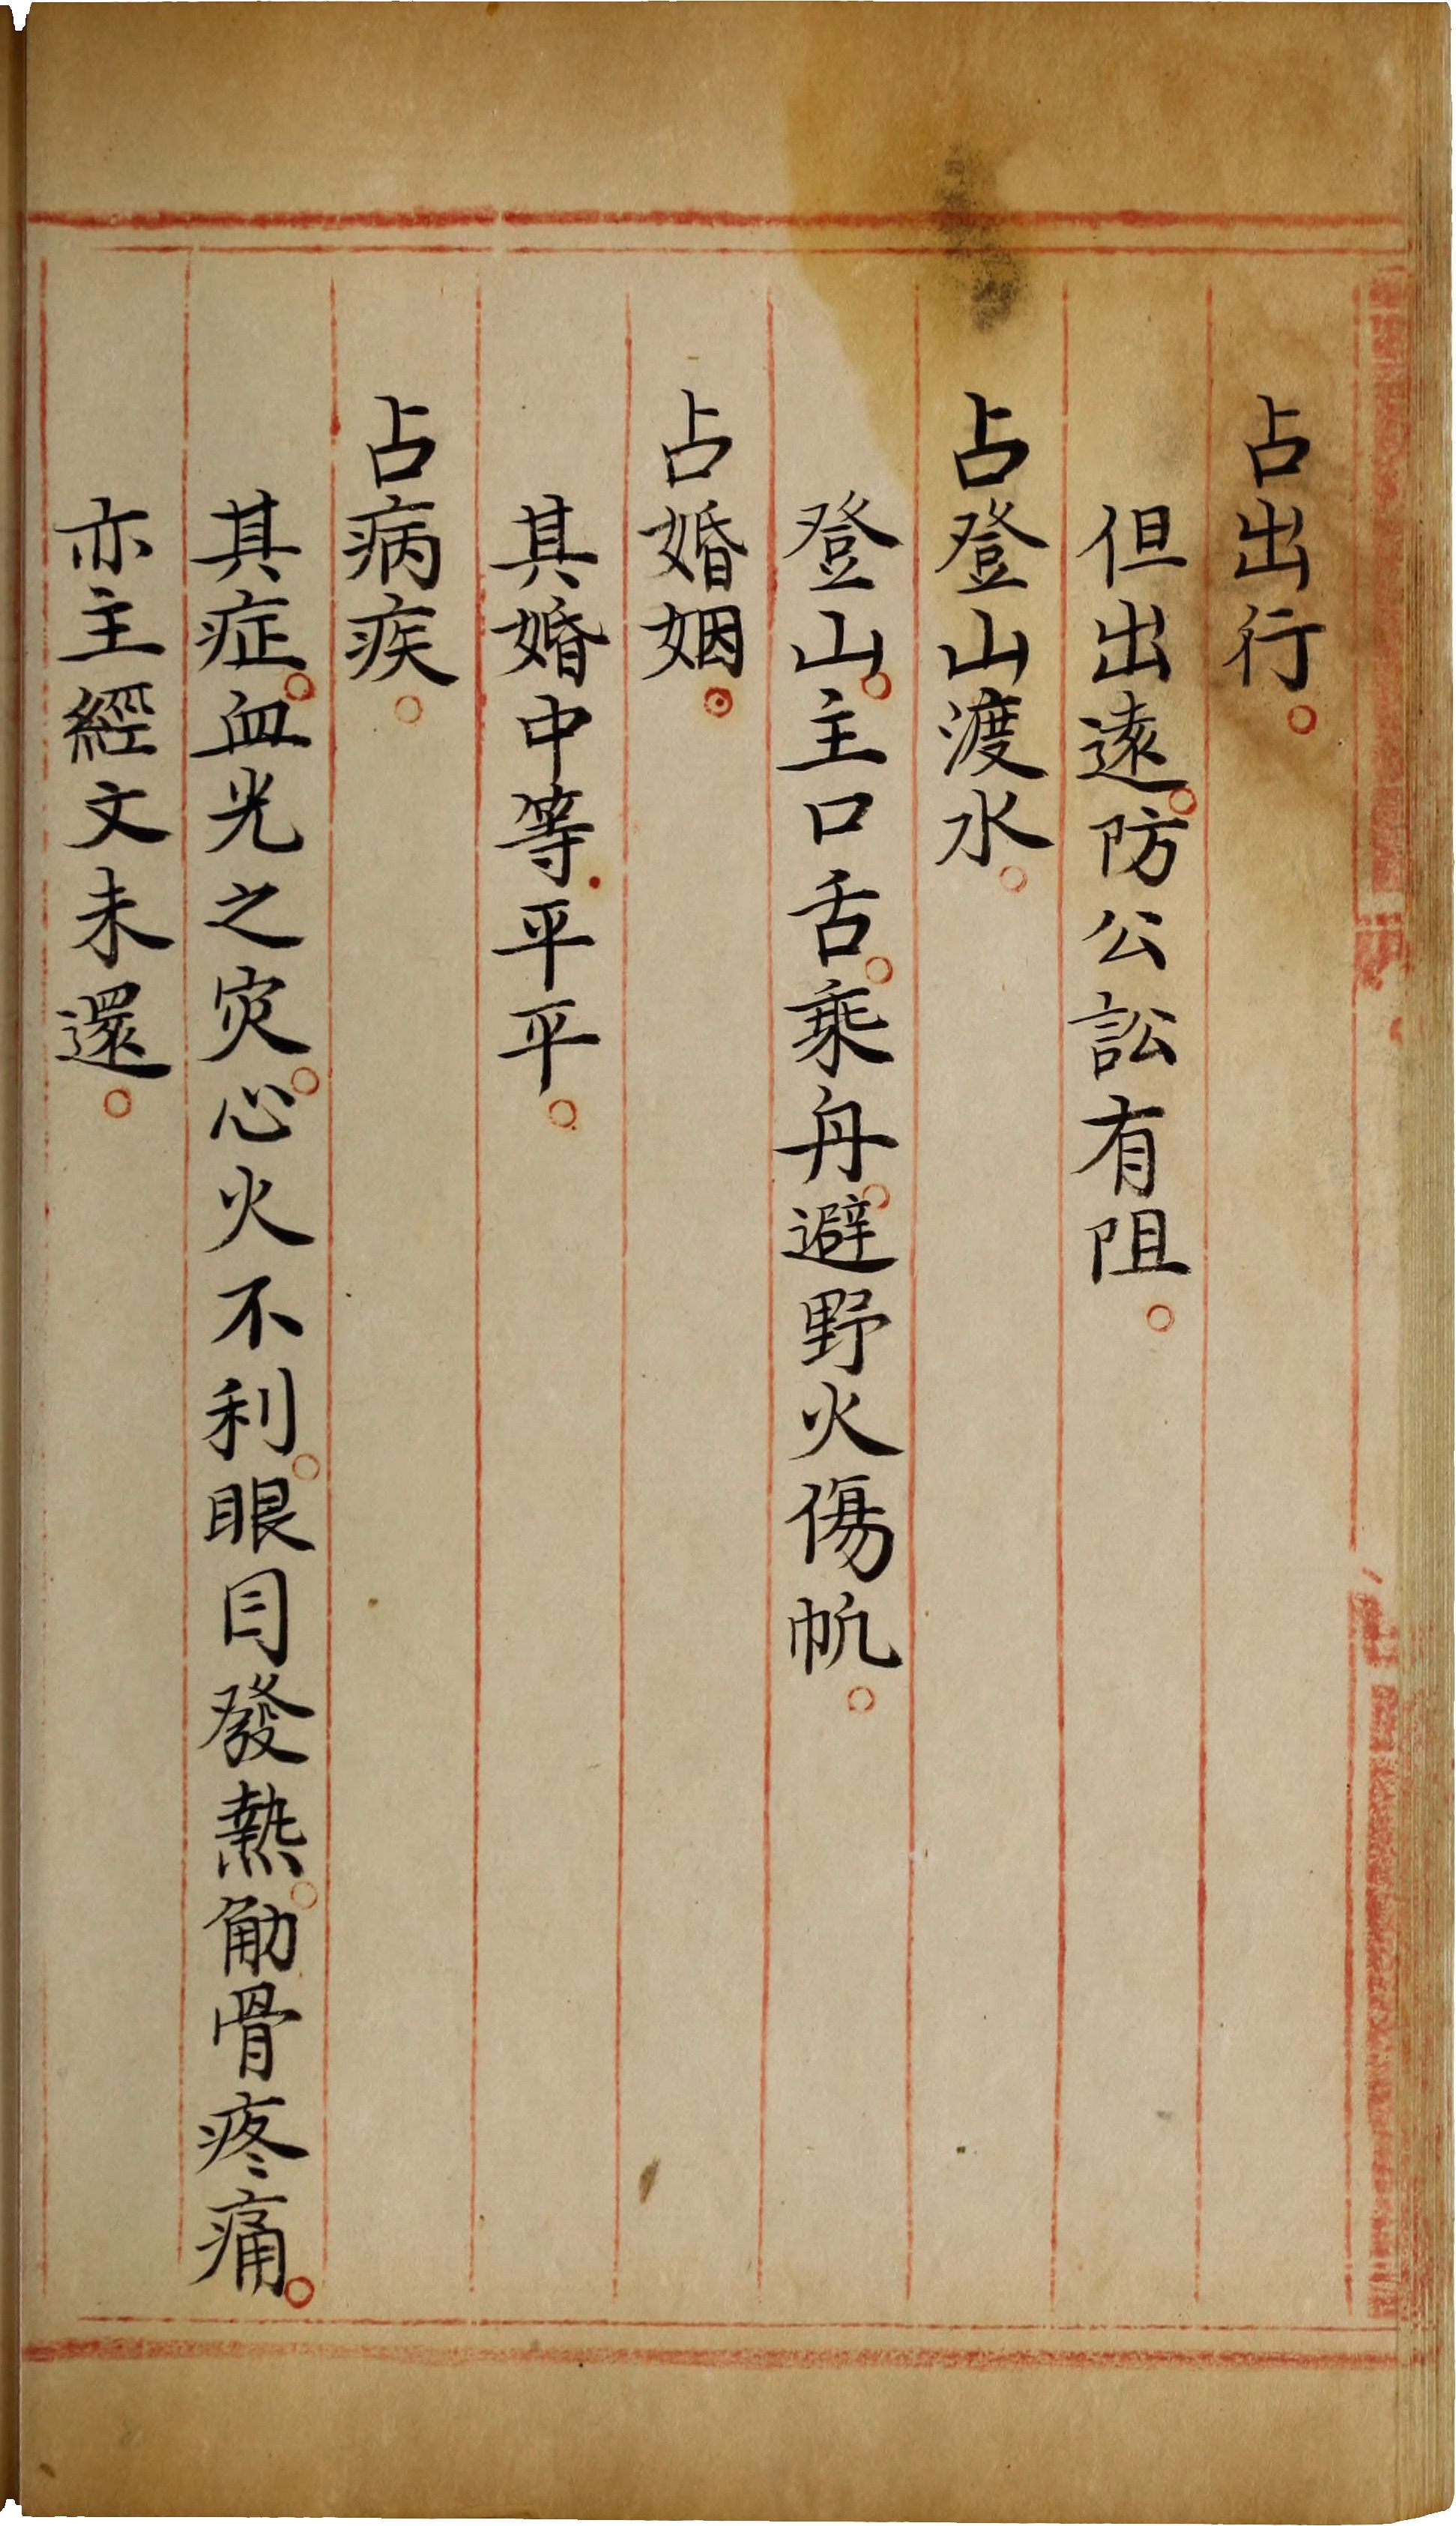 占出行。
但出遠。防公訟有阻。
占登山渡水。
登山。主口舌。乘舟。避野火傷帆。
占婚姻。
其婚中等。平平。
占病疾。
其症。血光之灾。心火不利。眼目發熱。觔骨疼痛。
亦主經文未還。